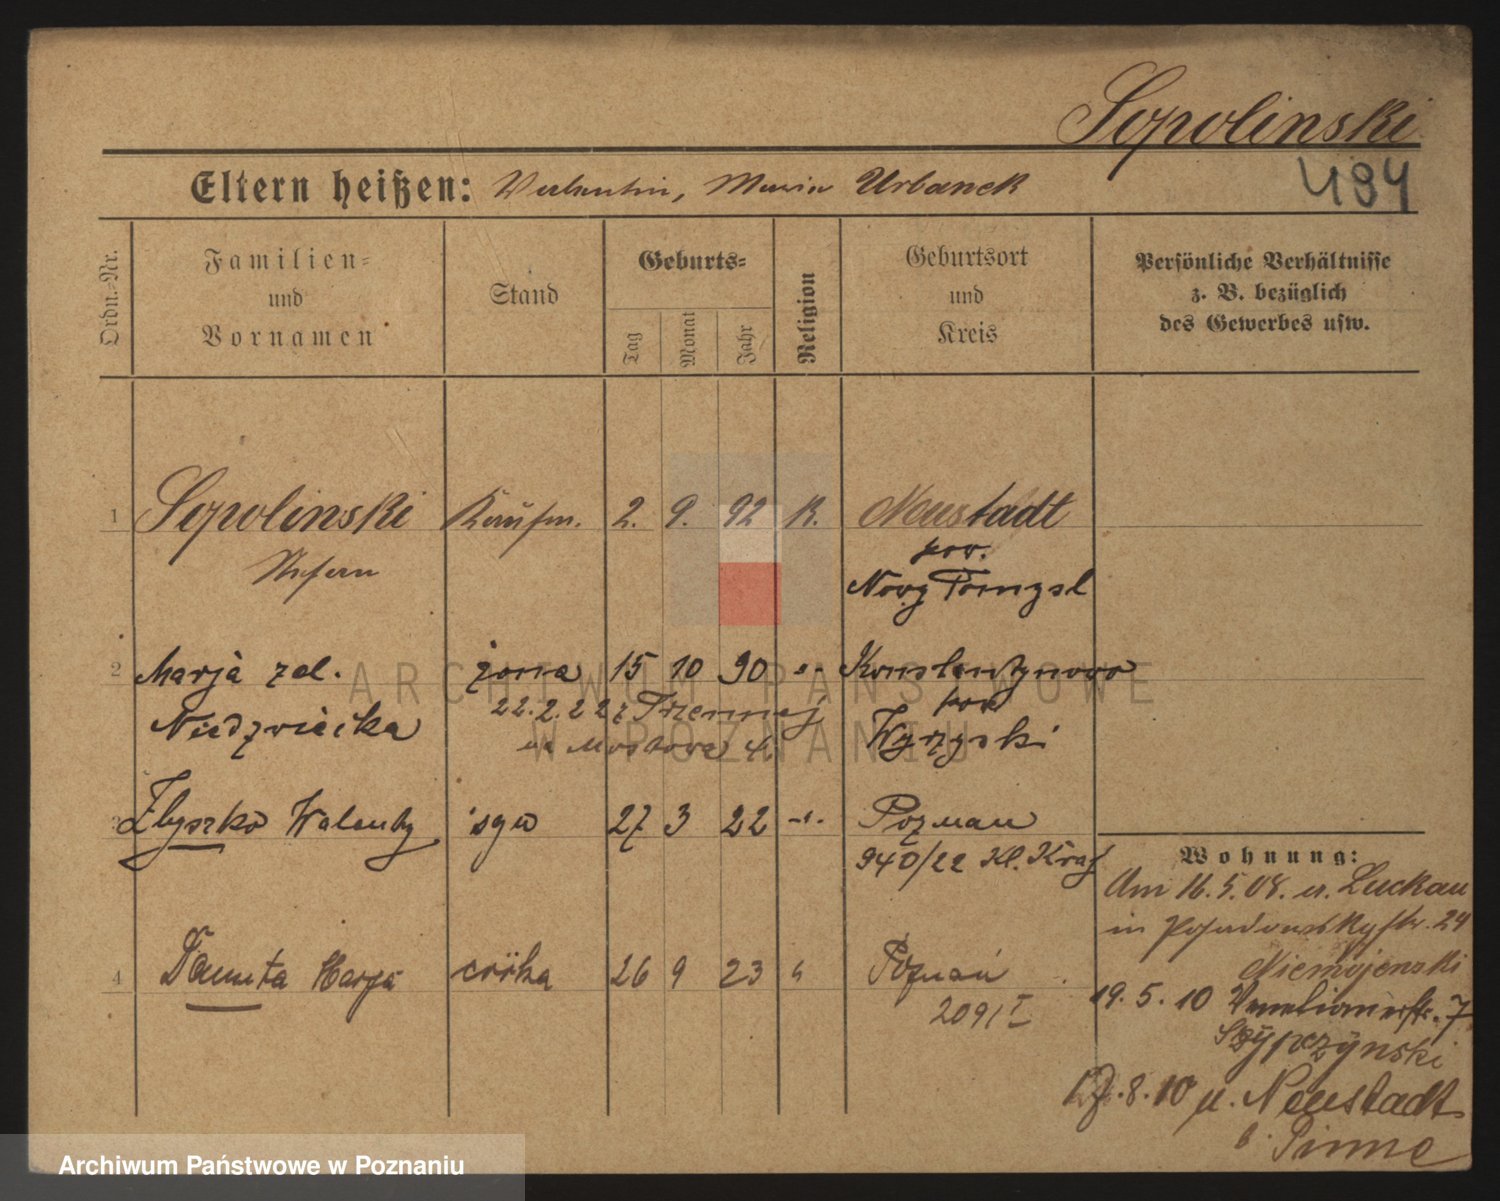 Sopolinski
494
Eltern heißen: Valentin, Maria Urbanek
Ordn.-Nr.
Familien- und Vornamen
Stand
Geburts-
Tag
Monat
Jahr
Religion
Geburtsort und Kreis
Persönliche Verhältnisse
z. B. bezüglich
des Gewerbes usw.
1 Sopolinski Kaufm. 2. 9. 92 K. Neustadt
Stefan
pow.
Nowy Tomysl
2 Marja zd. żona 15 10 90 Konstantynowo
22.2.22 z Trzemnej
pow
Niedzwiecka
Wyrzyski
na Mostowa 4.
3 Zbyszko Walenty syn 27 3 22 Poznan
940/22 Kl. Kraf
4 Danuta Marja córka 26 9 23 " Poznań
2091 I
Wohnung:
Am 16.5.08. u. Luckau
in Posadowskystr. 24
Niemojenski
19. 5. 10 Venetianerstr. 7
Szypczynski
8.10 u. Neustadt
b. Pinne
ARCHIWUM PAŃSTWOWE
W POZNANIU
Archiwum Państwowe w Poznaniu